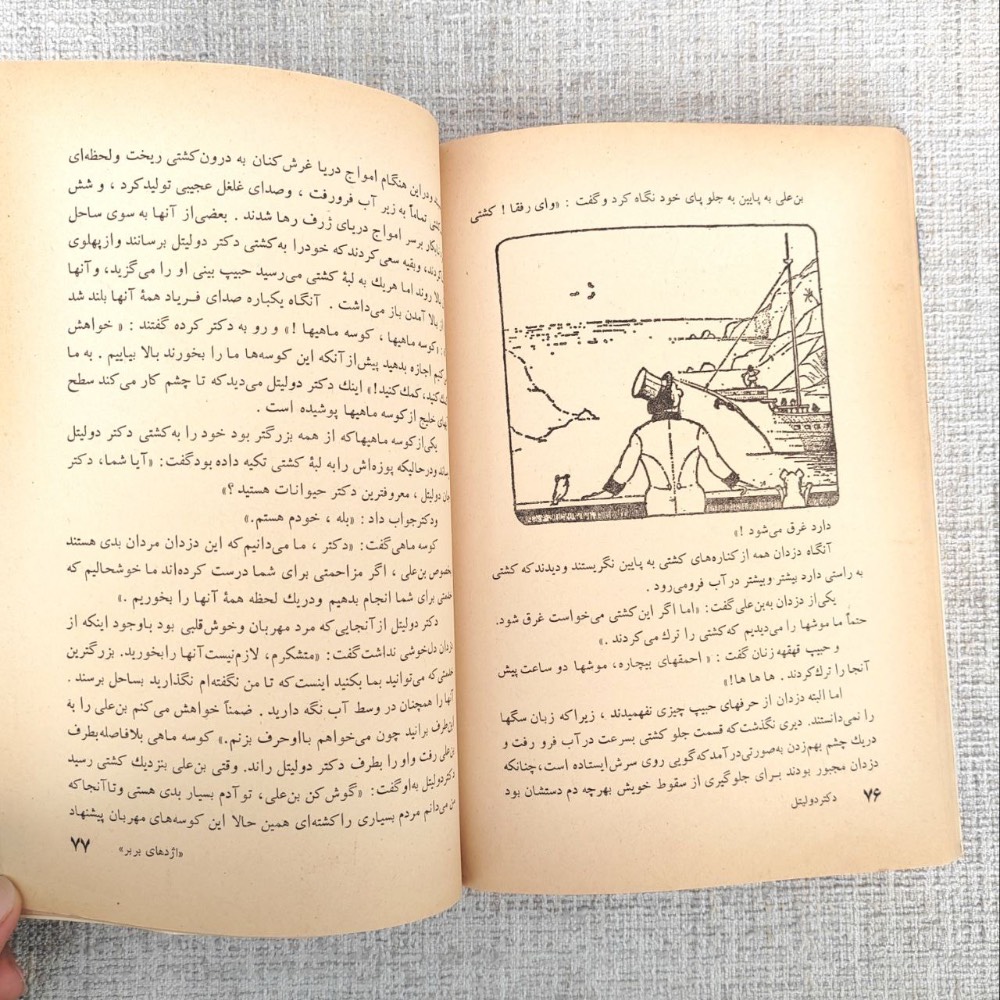 بن‌علی به پایین به جلو پای خود نگاه کرد و گفت : «وای رفقا ! کشتی
دارد غرق می‌شود !»
آنگاه دزدان همه از کناره‌های کشتی به پایین نگریستند و دیدند که کشتی
به راستی دارد بیشتر و بیشتر در آب فرو می‌رود .
یکی از دزدان به بن‌علی گفت: «اما اگر این کشتی می‌خواست غرق شود.
حتماً ما موشها را می‌دیدیم که کشتی را ترك می‌کردند .»
و حبیب قهقهه زنان گفت : « احمقهای بیچاره، موشها دو ساعت پیش
آنجا را ترك کردند . ها ها ها!»
اما البته دزدان از حرفهای حبیب چیزی نفهمیدند ، زیرا که زبان سگها
را نمی‌دانستند. دیری نگذشت که قسمت جلو کشتی بسرعت در آب فرو رفت و
دریك چشم بهم‌زدن به‌صورتی در آمد که گویی روی سرش ایستاده است، چنانکه
دزدان مجبور بودند برای جلوگیری از سقوط خویش بهرچه دم دستشان بود
۷۶ دکتر دولیتل
و در این هنگام امواج دریا غرش کنان به درون کشتی ریخت و لحظه‌ای
تماماً به زیر آب فرو رفت ، و صدای غلغل عجیبی تولید کرد ، و شش
بر سر امواج دریای ژرف رها شدند . بعضی از آنها به سوی ساحل
و بقیه سعی کردند که خود را به کشتی دکتر دولیتل برسانند و از پهلوی
بالا روند اما هریك به لبهٔ کشتی می‌رسید حبیب بینی او را می‌گزید، و آنها
بالا آمدن باز می‌داشت . آنگاه یکباره صدای فریاد همهٔ آنها بلند شد
«کوسه ماهیها ، کوسه ماهیها !» و رو به دکتر کرده گفتند : « خواهش
اجازه بدهید پیش از آنکه این کوسه‌ها ما را بخورند بالا بیاییم . به ما
کمك کنید!» اینك دکتر دولیتل می‌دید که تا چشم کار می‌کند سطح
خلیج از کوسه ماهیها پوشیده است .
یکی از کوسه ماهیها که از همه بزرگتر بود خود را به کشتی دکتر دولیتل
و در حالیکه پوزه‌اش را به لبهٔ کشتی تکیه داده بود گفت: «آیا شما، دکتر
دولیتل ، معروفترین دکتر حیوانات هستید ؟»
و دکتر جواب داد : «بله ، خودم هستم.»
کوسه ماهی گفت: «دکتر ، ما می‌دانیم که این دزدان مردان بدی هستند
بن‌علی ، اگر مزاحمتی برای شما درست کرده‌اند ما خوشحالیم که
برای شما انجام بدهیم و دریك لحظه همهٔ آنها را بخوریم .»
دکتر دولیتل از آنجایی که مرد مهربان و خوش‌قلبی بود با وجود اینکه از
دزدان دل‌خوشی نداشت گفت: «متشکرم، لازم نیست آنها را بخورید. بزرگترین
که می‌توانید بما بکنید اینست که تا من نگفته‌ام نگذارید بساحل برسند .
آنها را همچنان در وسط آب نگه دارید . ضمناً خواهش می‌کنم بن‌علی را به
این‌طرف برانید چون می‌خواهم با او حرف بزنم.» کوسه ماهی بلافاصله بطرف
بن‌علی رفت و او را بطرف دکتر دولیتل راند. وقتی بن‌علی بنزدیك کشتی رسید
دکتر دولیتل به او گفت: «گوش کن بن‌علی، تو آدم بسیار بدی هستی و تا آنجا که
من می‌دانم مردم بسیاری را کشته‌ای همین حالا این کوسه‌های مهربان پیشنهاد
«اژدهای بربر» ۷۷